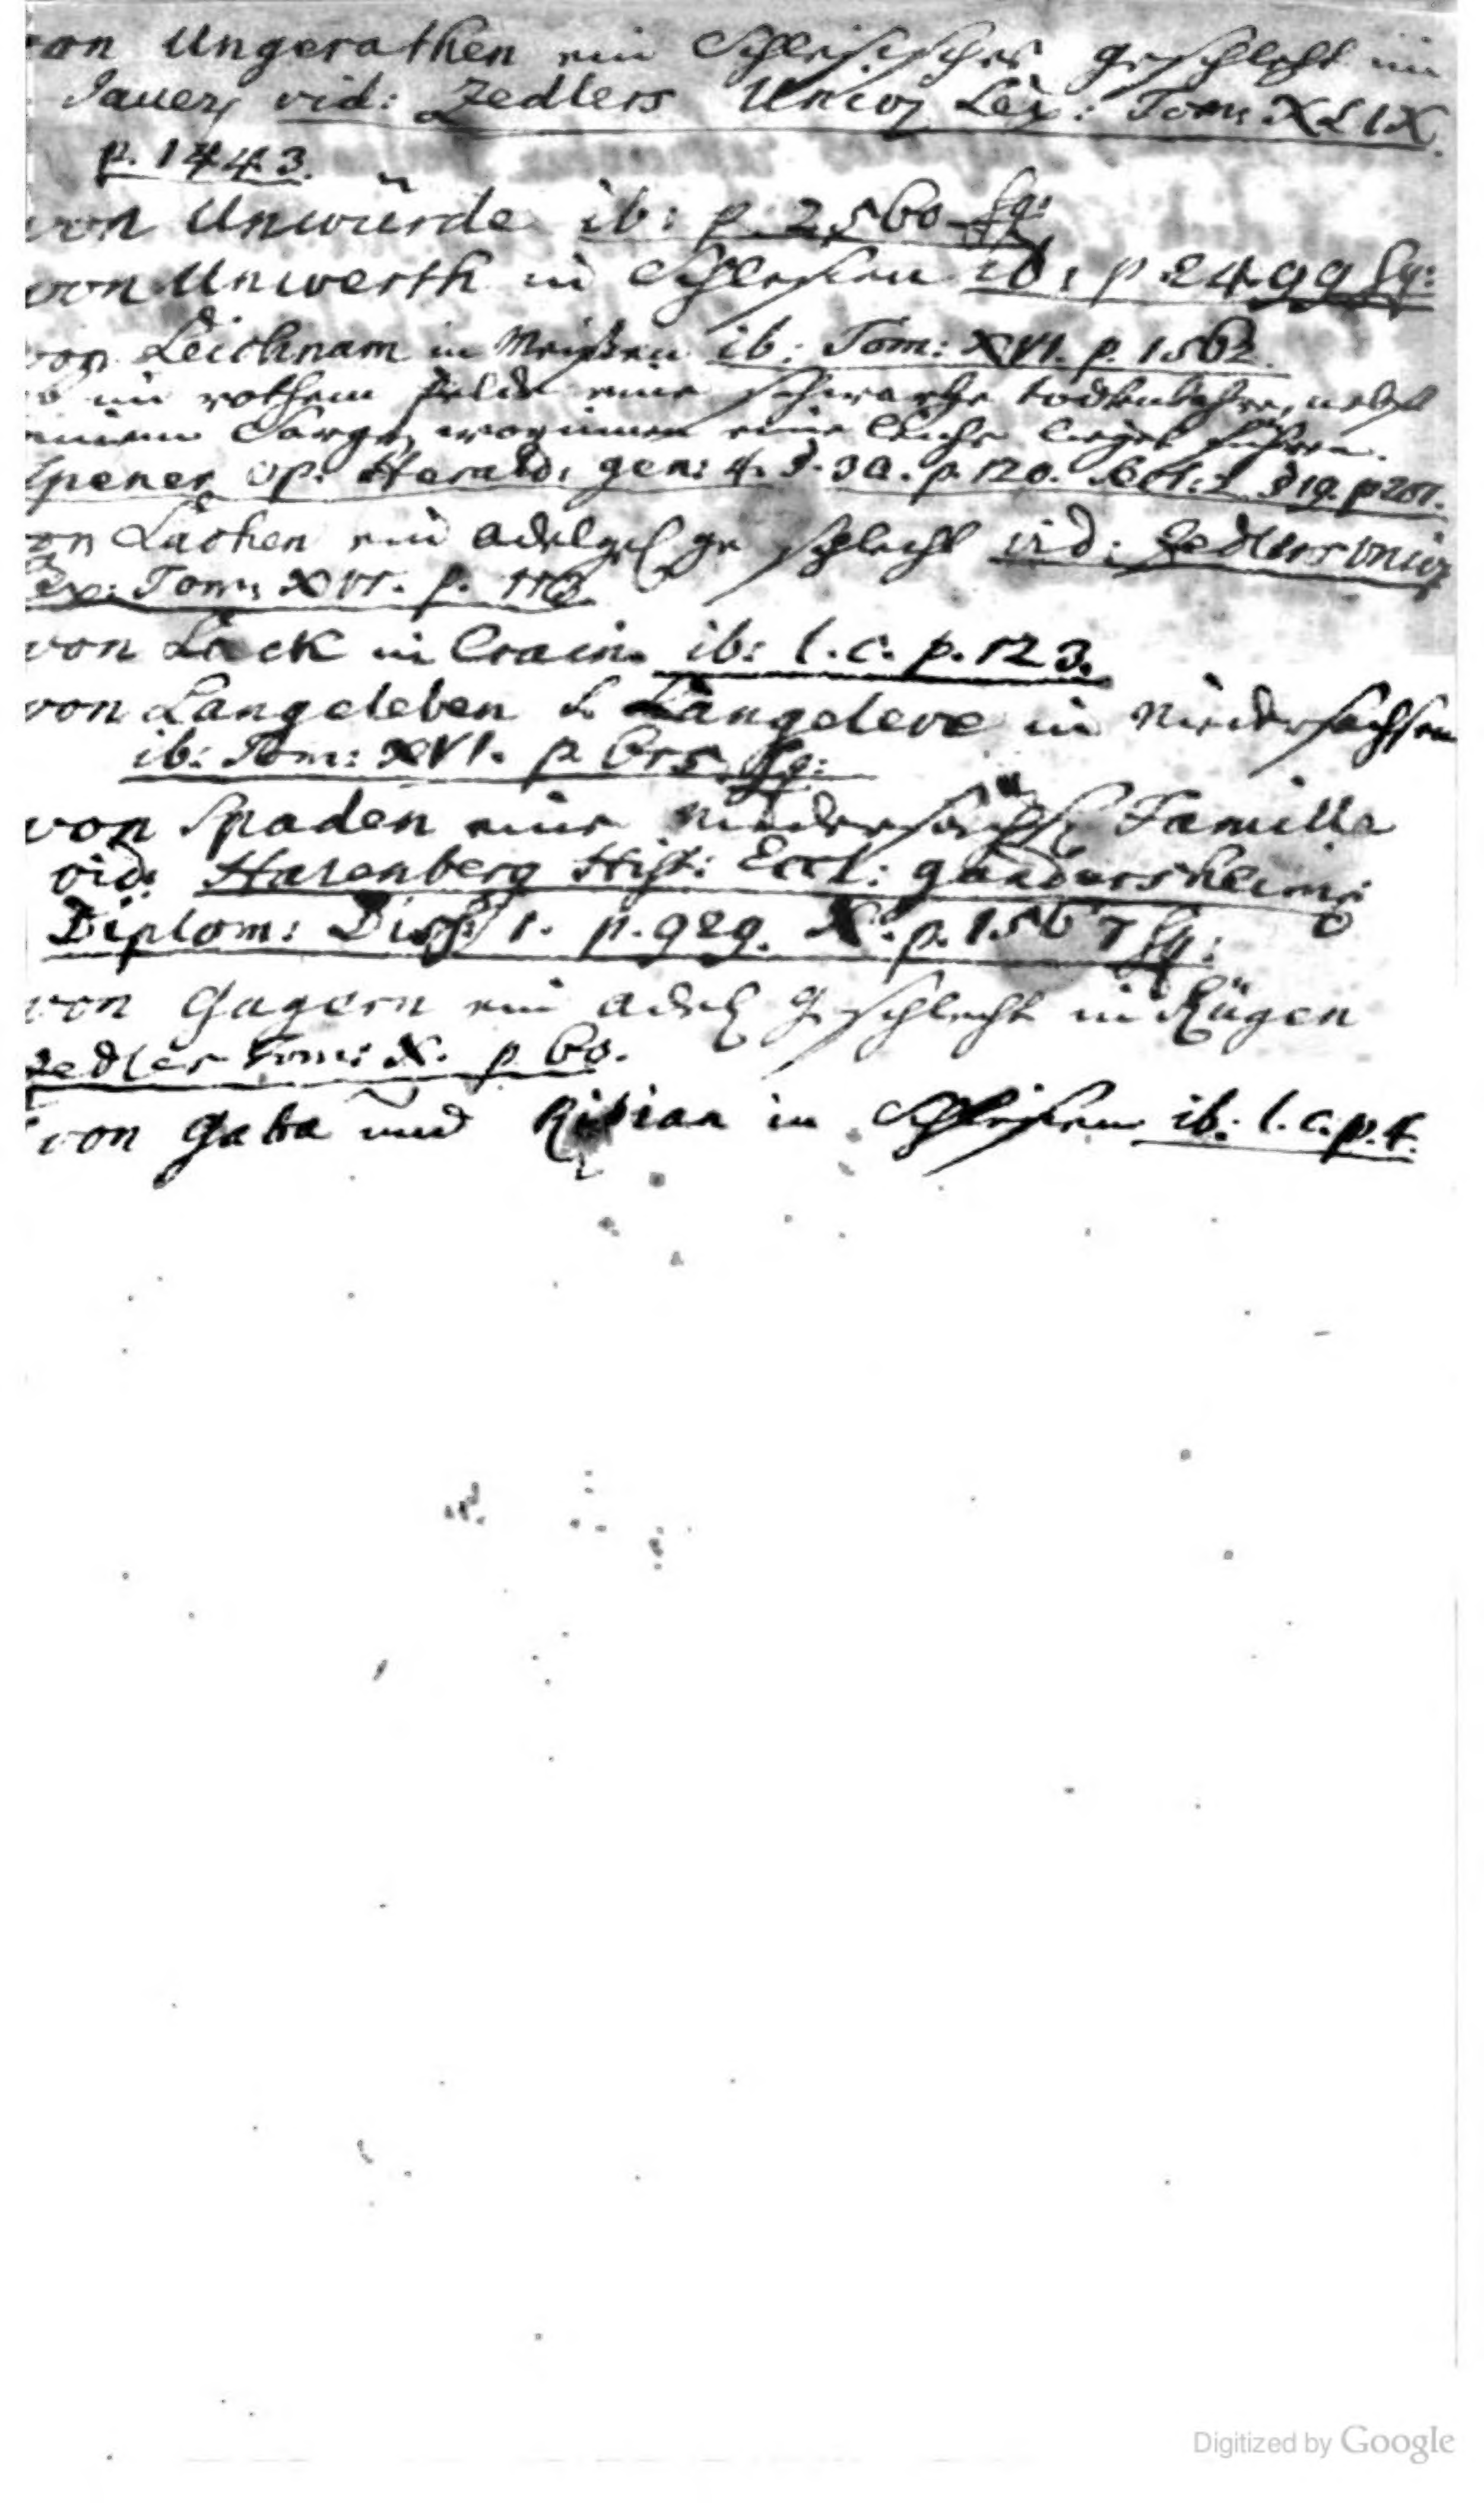 von Ungerathen ein Schlesisches geschlecht im
Jauer, vid: Zedlers Univ. Lex: Tom: XLIX.
p. 1443.
von Unwürde ib: p. 2560 sq:
von Unwerth in Schlesien ib: p 2499 sq:
von Leichnam in Meißen ib: Tom: XVI. p. 1562.
im rothem felde eine schwartze todtenbahre, nebst
einem Sarge, worinnen eine leiche lieget führen.
Spener op. Herald: gen: 4. p. 120. §19. p 201.
von Lachen ein adelges geschlecht vid: Zedlers univ
Lex: Tom: XVI. p.
von Lack in Crain. ib: l. c. p. 123.
von Langeleben s. Langeleve in Niedersachsen
ib: Tom: XVI. p sq:
von Spaden eine niedersächs Familie
vid: Harenberg Hist: Eccl: gandersheim:
Diplom: Diss: 1. p. 929. X. p. 1567 sq:
von Gagern ein adel geschlecht in Rügen
Zedler Tom: X. p 60.
von Gaba und in Schlesien ib: l. c. p. 4.
Digitized by Google